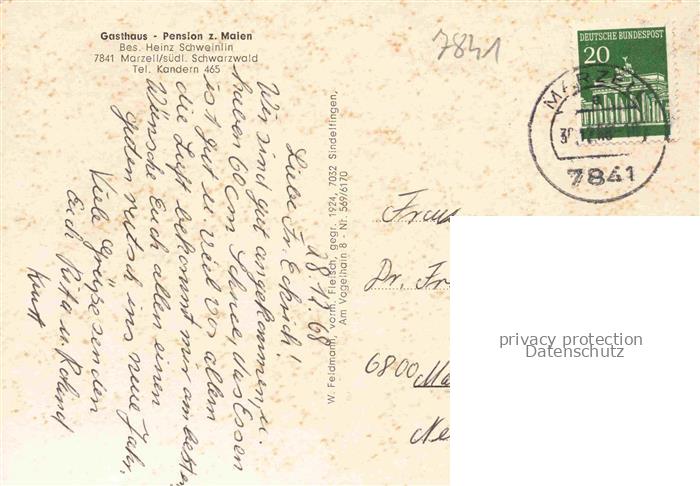 Gasthaus - Pension z. Maien
Bes. Heinz Schweinlin
7841 Marzell/südl. Schwarzwald
Tel. Kandern 465
7841
DEUTSCHE BUNDESPOST
20
MARZELL
7841
28.12.68
Liebe Fr. Eckrich!
Wir sind gut angekommen, u.
haben 60 cm Schnee, das Essen
ist gut u. viel vor allem
die Luft bekommt mir am besten
Wünsche Euch allen einen
guten rutsch ins neue Jahr,
Viele Grüße senden
Euch Rita u. Roland
Kurt
W. Feldmann, vorm. Fleisch, gegr. 1924, 7032 Sindelfingen,
Am Vogelhain 8 - Nr. 569/6170
Frau
Dr. Fr
6800 Ma
Ne
privacy protection
Datenschutz